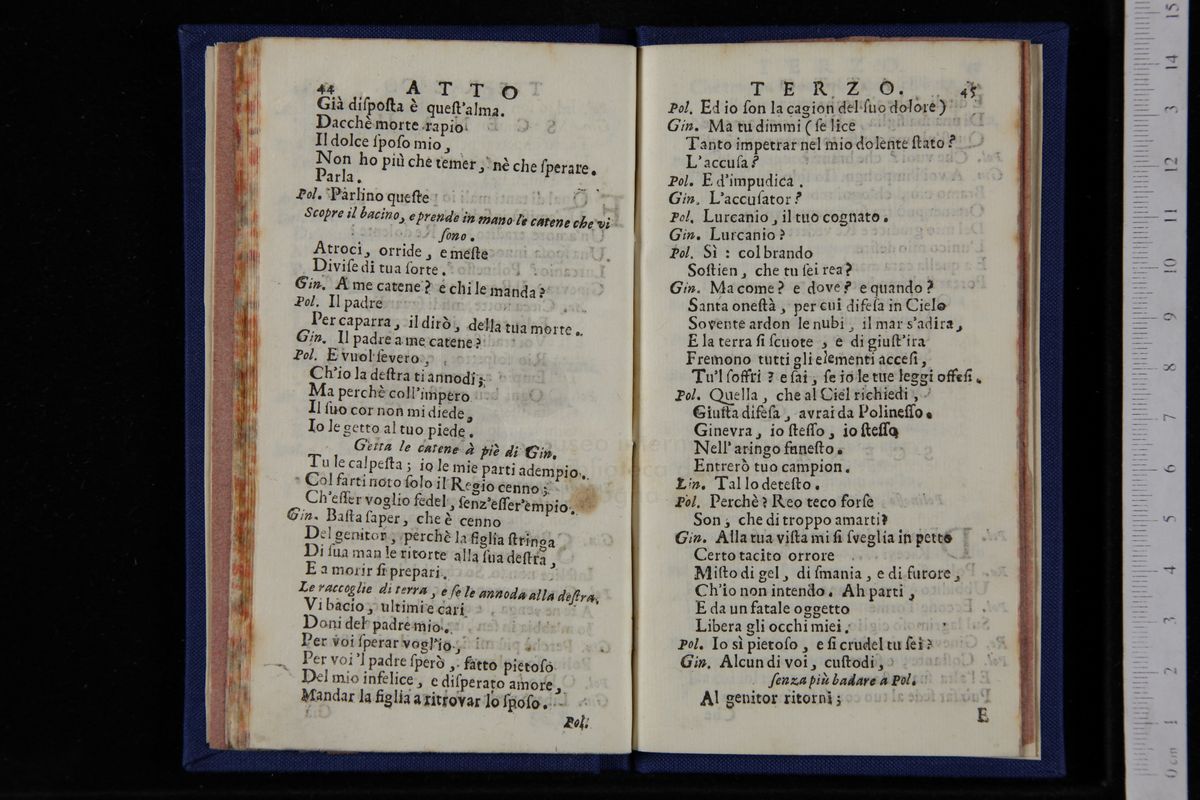 44 ATTO
Già diſpoſta è queſt'alma.
Dacchè morte rapio
Il dolce ſpoſo mio,
Non ho più che temer, nè che ſperare.
Parla.
Pol. Parlino queſte
Scopre il bacino, e prende in mano le catene che vi
ſono.
Atroci, orride, e meſte
Diviſe di tua ſorte.
Gin. A me catene? e chi le manda?
Pol. Il padre
Per caparra, il dirò, della tua morte.
Gin. Il padre a me catene?
Pol. E vuol ſevero,
Ch'io la deſtra ti annodi;
Ma perchè coll'impero
Il ſuo cor non mi diede,
Io le getto al tuo piede.
Getta le catene a piè di Gin.
Tu le calpeſta; io le mie parti adempio.
Col farti noto ſolo il Regio cenno;
Ch'eſſer voglio fedel, ſenz'eſſer'empio.
Gin. Baſta ſaper, che è cenno
Del genitor, perchè la figlia ſtringa
Di ſua man le ritorte alla ſua deſtra,
E a morir ſi prepari.
Le raccoglie di terra, e ſe le annoda alla deſtra.
Vi bacio, ultimi e cari
Doni del padre mio.
Per voi ſperar vogl'io,
Per voi 'l padre ſperò, fatto pietoſo
Del mio infelice, e diſperato amore,
Mandar la figlia a ritrovar lo ſpoſo.
Pol.
TERZO. 45
Pol. Ed io ſon la cagion del ſuo dolore)
Gin. Ma tu dimmi (ſe lice
Tanto impetrar nel mio dolente ſtato?
L'accuſa?
Pol. E d'impudica.
Gin. L'accuſator?
Pol. Lurcanio, il tuo cognato.
Gin. Lurcanio?
Pol. Sì: col brando
Soſtien, che tu ſei rea?
Gin. Ma come? e dove? e quando?
Santa oneſtà, per cui difeſa in Cielo
Sovente ardon le nubi, il mar s'adira,
E la terra ſi ſcuote, e di giuſt'ira
Fremono tutti gli elementi acceſi,
Tu'l ſoffri? e ſai, ſe io le tue leggi offeſi.
Pol. Quella, che al Ciel richiedi,
Giuſta difeſa, avrai da Polineſſo.
Ginevra, io ſteſſo, io ſteſſo
Nell'aringo funeſto.
Entrerò tuo campion.
Lin. Tal lo deteſto.
Pol. Perchè? Reo teco forſe
Son, che di troppo amarti?
Gin. Alla tua viſta mi ſi ſveglia in petto
Certo tacito orrore
Miſto di gel, di ſmania, e di furore,
Ch'io non intendo. Ah parti,
E da un fatale oggetto
Libera gli occhi miei.
Pol. Io sì pietoſo, e ſi crudel tu ſei?
Gin. Alcun di voi, cuſtodi,
ſenza più badare a Pol.
Al genitor ritorni;
E